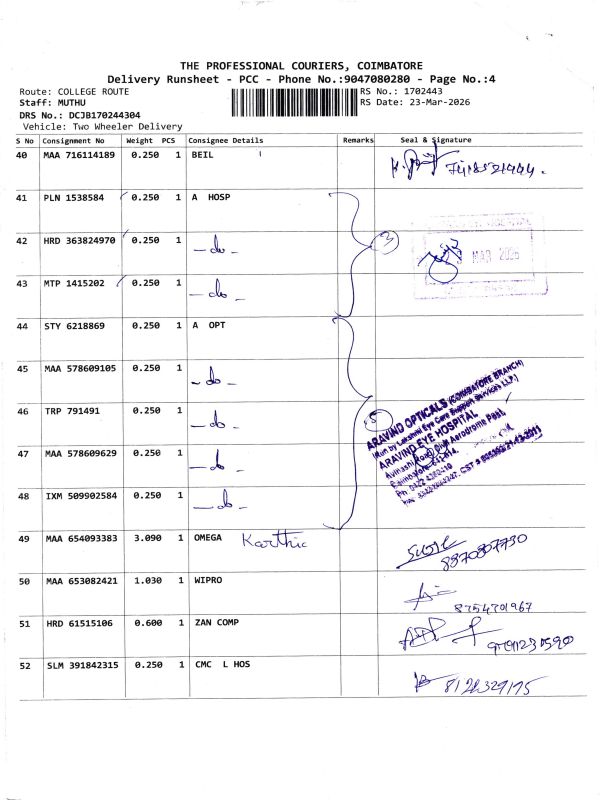 THE PROFESSIONAL COURIERS, COIMBATORE
Delivery Runsheet - PCC - Phone No.:9047080280 - Page No.:4
Route: COLLEGE ROUTE RS No.: 1702443
Staff: MUTHU RS Date: 23-Mar-2026
DRS No.: DCJB170244304
Vehicle: Two Wheeler Delivery
S No Consignment No Weight PCS Consignee Details Remarks Seal & Signature
40 MAA 716114189 0.250 1 BEIL
41 PLN 1538584 0.250 1 A HOSP
42 HRD 363824970 0.250 1 - do - 3
MAR 2026
43 MTP 1415202 0.250 1 - do -
44 STY 6218869 0.250 1 A OPT
45 MAA 578609105 0.250 1 - do -
46 TRP 791491 0.250 1 - do - 5
ARAVIND OPTICALS (COIMBATORE BRANCH)
(Run by Lakshmi Eye Care Support Services LLP.)
ARAVIND EYE HOSPITAL
Avinashi Road, Civil Aerodrome Post,
47 MAA 578609629 0.250 1 - do -
48 IXM 509902584 0.250 1 - do -
49 MAA 654093383 3.090 1 OMEGA Karthic
8870807730
50 MAA 653082421 1.030 1 WIPRO
8754701967
51 HRD 61515106 0.600 1 ZAN COMP
52 SLM 391842315 0.250 1 CMC L HOS